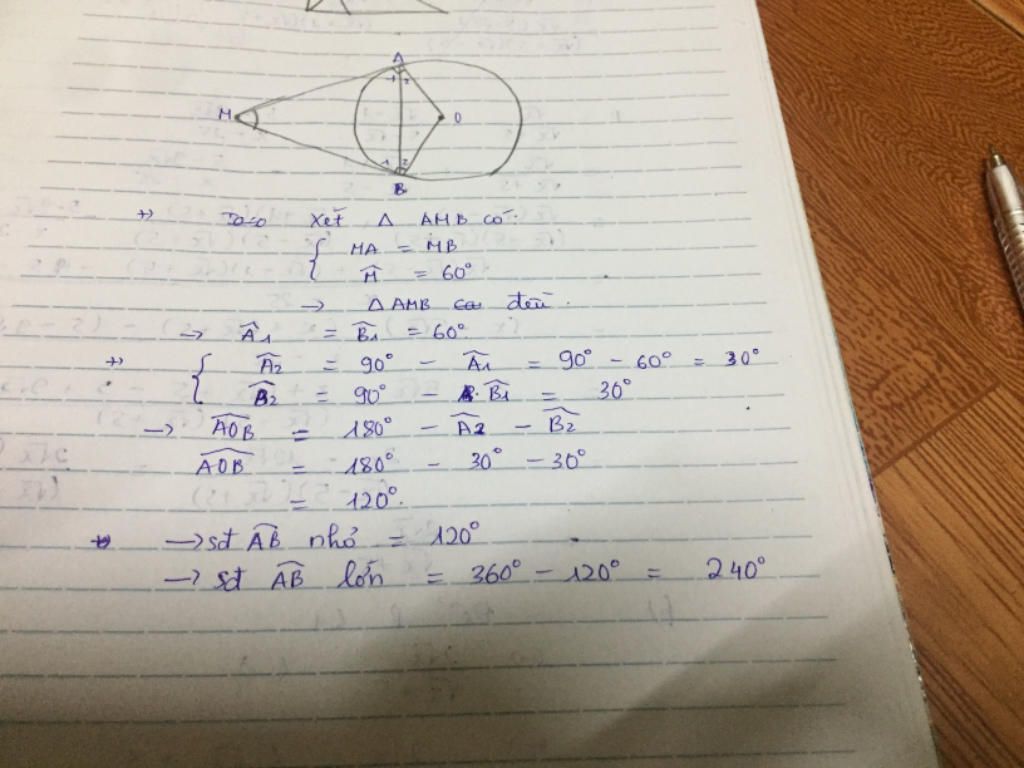 A
M
1 2
O
1 2
B
Xét Δ AMB có:
{ MA = MB
M̂ = 60°
→ Δ AMB đều.
→ Â1 = B̂1 = 60°
{ Â2 = 90° - Â1 = 90° - 60° = 30°
B̂2 = 90° - B̂1 = 30°
→ AÔB = 180° - Â2 - B̂2
AÔB = 180° - 30° - 30°
= 120°.
→ sđ AB nhỏ = 120°
→ sđ AB lớn = 360° - 120° = 240°